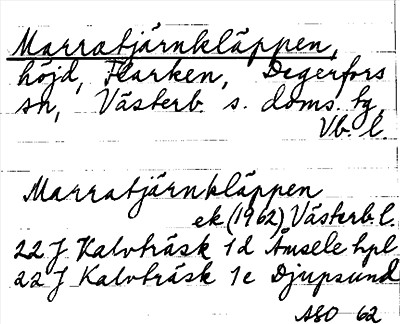 Marratjärnkläppen,
höjd, Flarken, Degerfors
sn, Västerb. s. doms. tg,
Vb. l.
Marratjärnkläppen
ek (1962) Västerb. l.
22 J Kalvträsk 1d Åmsele hpl
22 J Kalvträsk 1c Djupsund
ASO 62